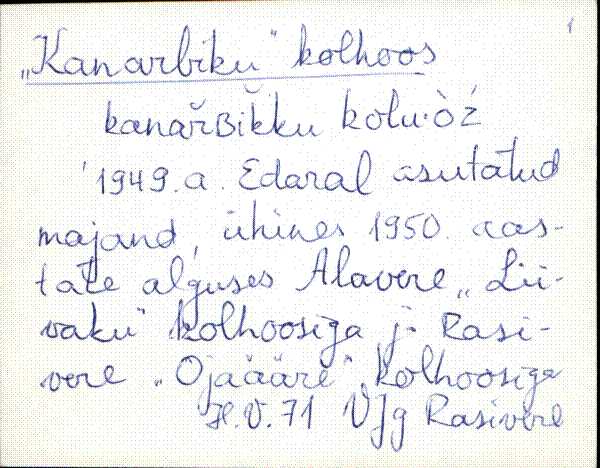 „Kanarbiku" kolhoos
kanařʙĭkku kolu·òź
1949. a. Edaral asutatud
majand, ühines 1950. aas-
tate alguses Alavere „Lii-
vaku" kolhoosiga j. Rasi-
vere „Ojaääre" kolhoosiga
H.V. 71 VJg Rasivere